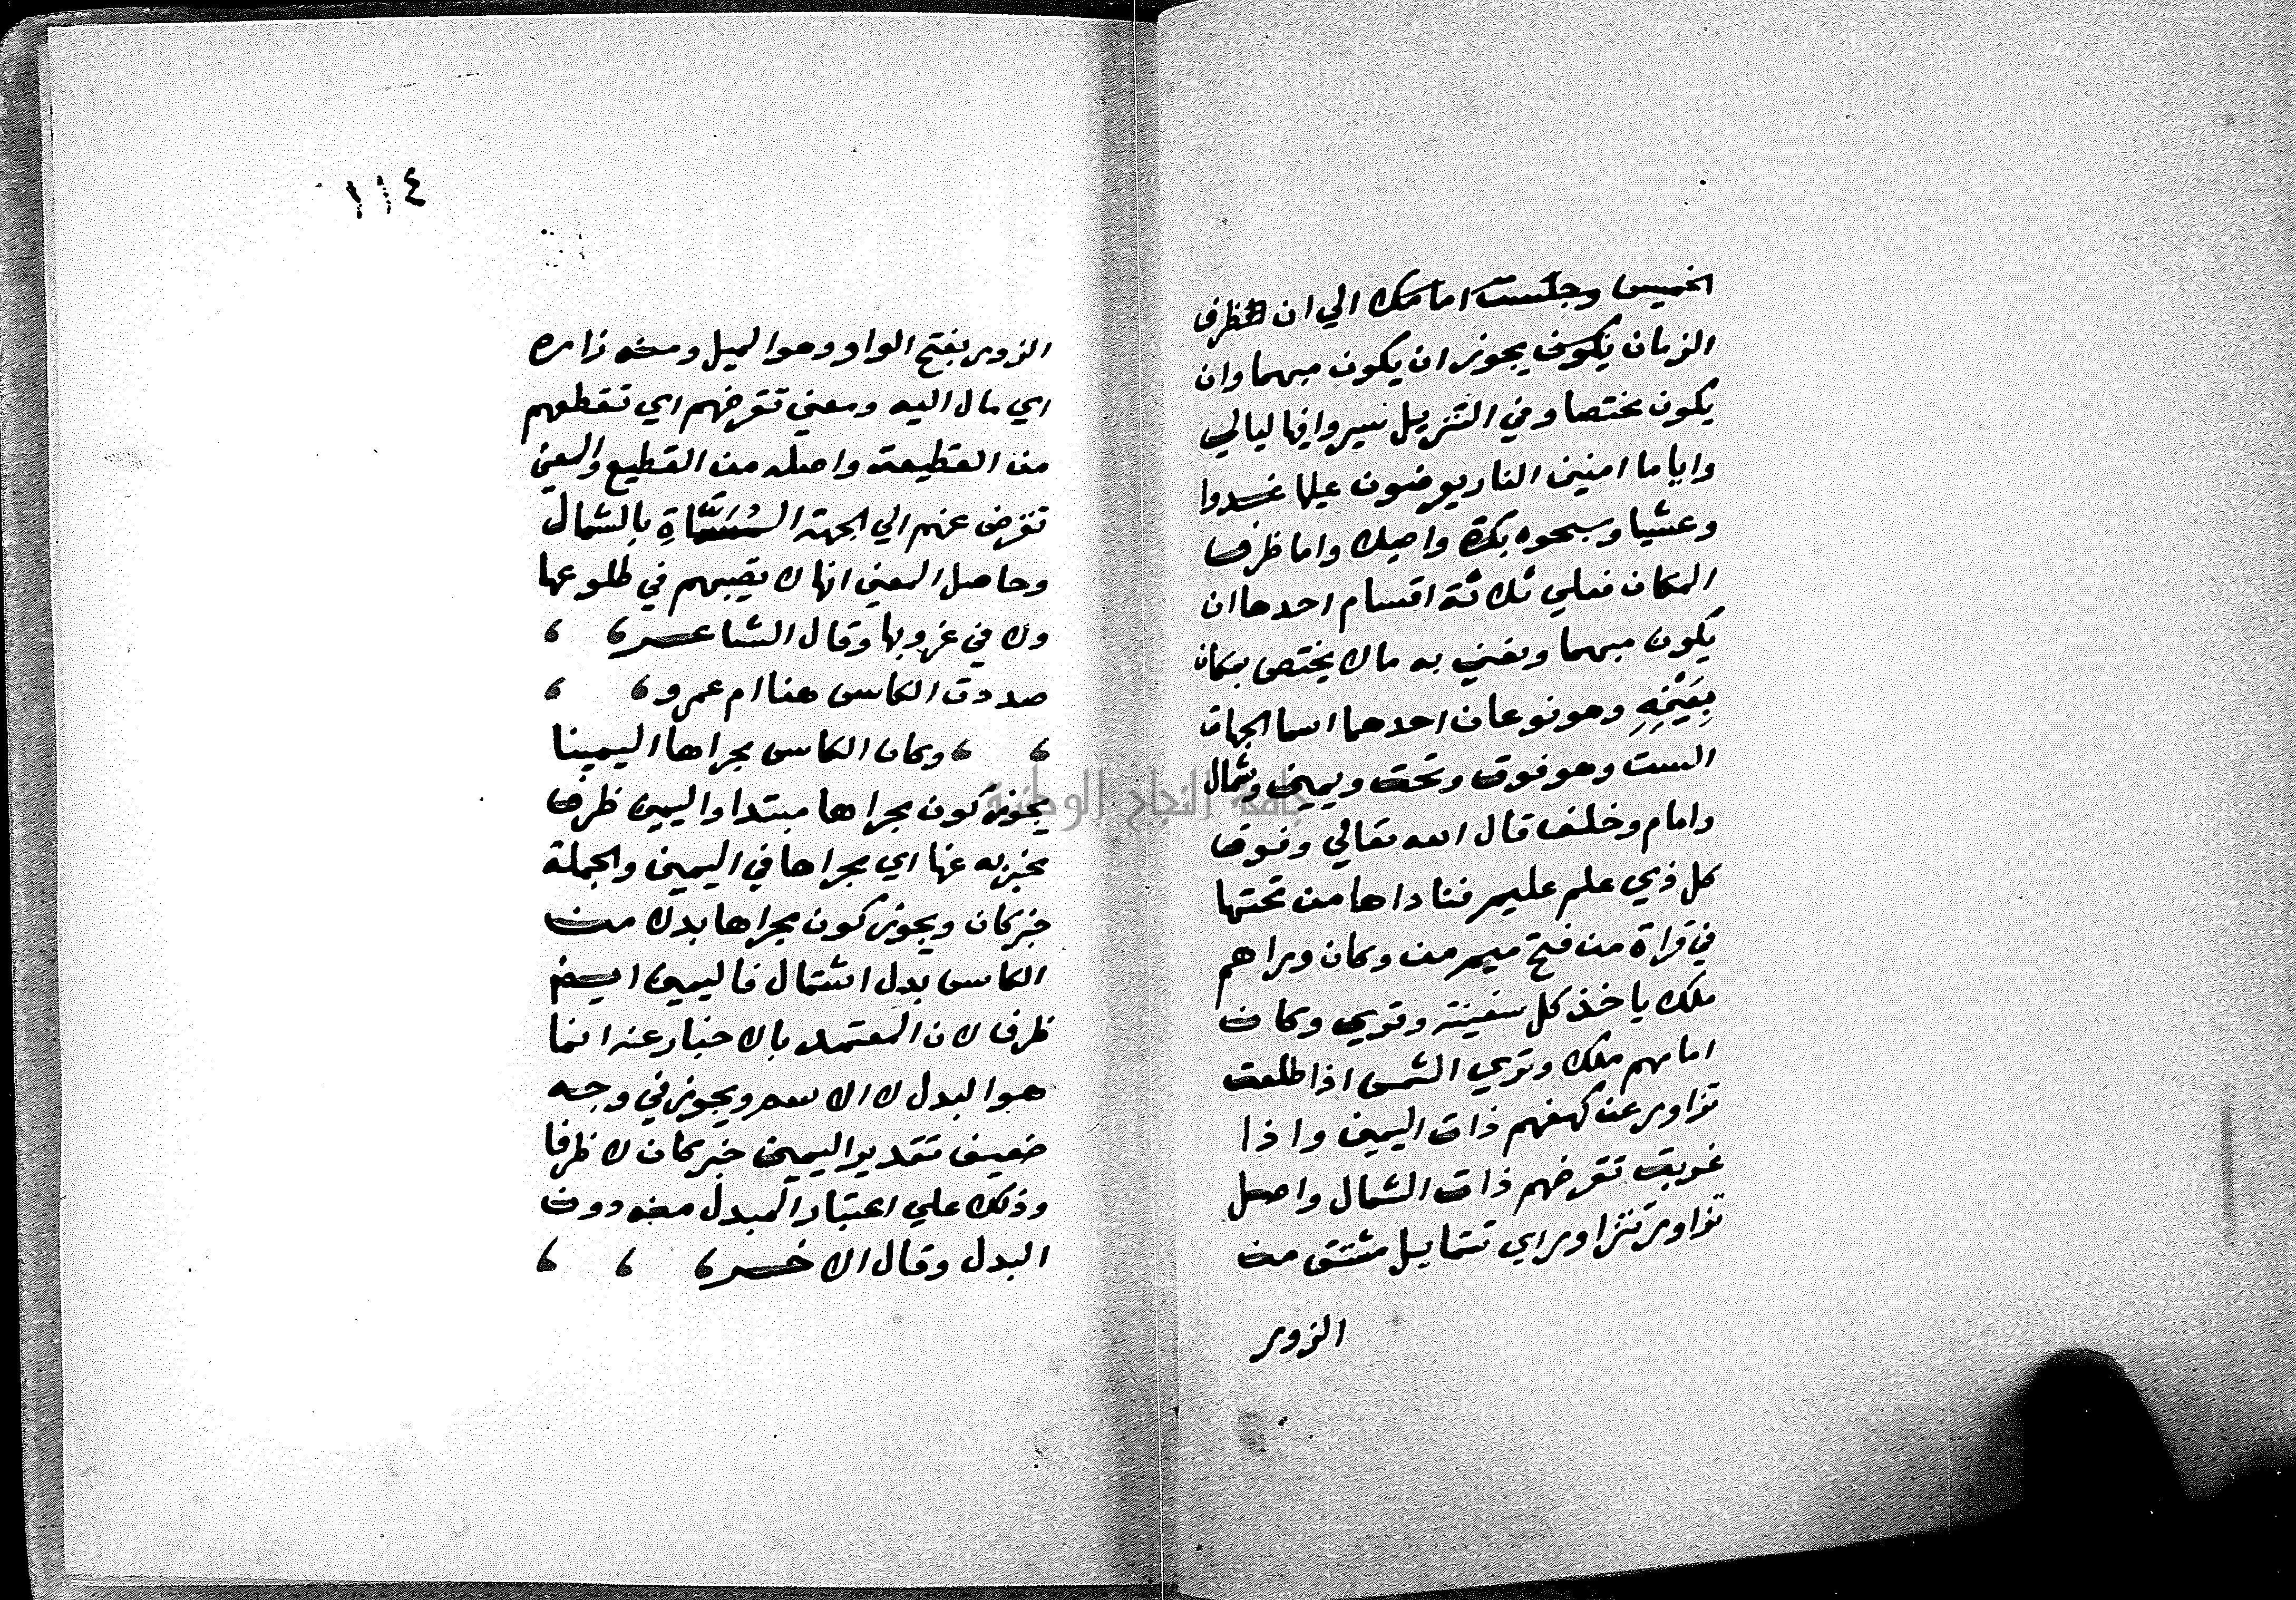 الخميس وجلست امامك الي ان ظرف
الزمان يكون يجوز ان يكون مبهما وان
يكون مختصا وفي التنزيل سيروا فيها ليالي
واياما امنين النار يعرضون عليها غدوا
وعشيا وسبحوه بكرة واصيلا واما ظرف
المكان فعلي ثلاثة اقسام احدها ان
يكون مبهما ونعني به مالا يختص بمكان
بِعَيْنِهِ وهو نوعان احدهما اسما الجهات
الست وهو فوق وتحت ويمين وشمال
وامام وخلف قال الله تعالي وفوق
كل ذي علم عليم فناداها من تحتها
في قراة من فتح ميم من وكان وراهم
ملك ياخذ كل سفينة وقري وكان
امامهم ملك وتري الشمس اذا طلعت
تزاور عن كهفهم ذات اليمين واذا
غربت تقرضهم ذات الشمال واصل
تزاور تتزاور اي تتمايل مشتق من
الزور
١١٤
الزور بفتح الواو وهو الميل ومنه زاره
اي مال اليه ومعني تقرضهم اي تقطعهم
من القطيعة واصله من القطيع والمعني
تقرض عنهم الي الجهة المُسَمَّاةِ بالشمال
وحاصل المعني انها لا تصيبهم في طلوعها
ولا في غروبها وقال الشاعر
صددت الكاس هنا ام عمرو
وكان الكاس مجراها اليمينا
يجوز كون مجراها مبتدا واليمين ظرف
مخبر به عنها اي مجراها في اليمين والجملة
خبر كان ويجوز كون مجراها بدلا من
الكاس بدل اشتمال فاليمين ايضا
ظرف لان المعتمد بالاخبار عنه انما
هو البدل لا الاسم ويجوز في وجه
ضعيف تقدير اليمين خبر كان لا ظرفا
وذلك علي اعتبار المبدل منه دون
البدل وقال الاخر
جامعة النجاح الوطنية